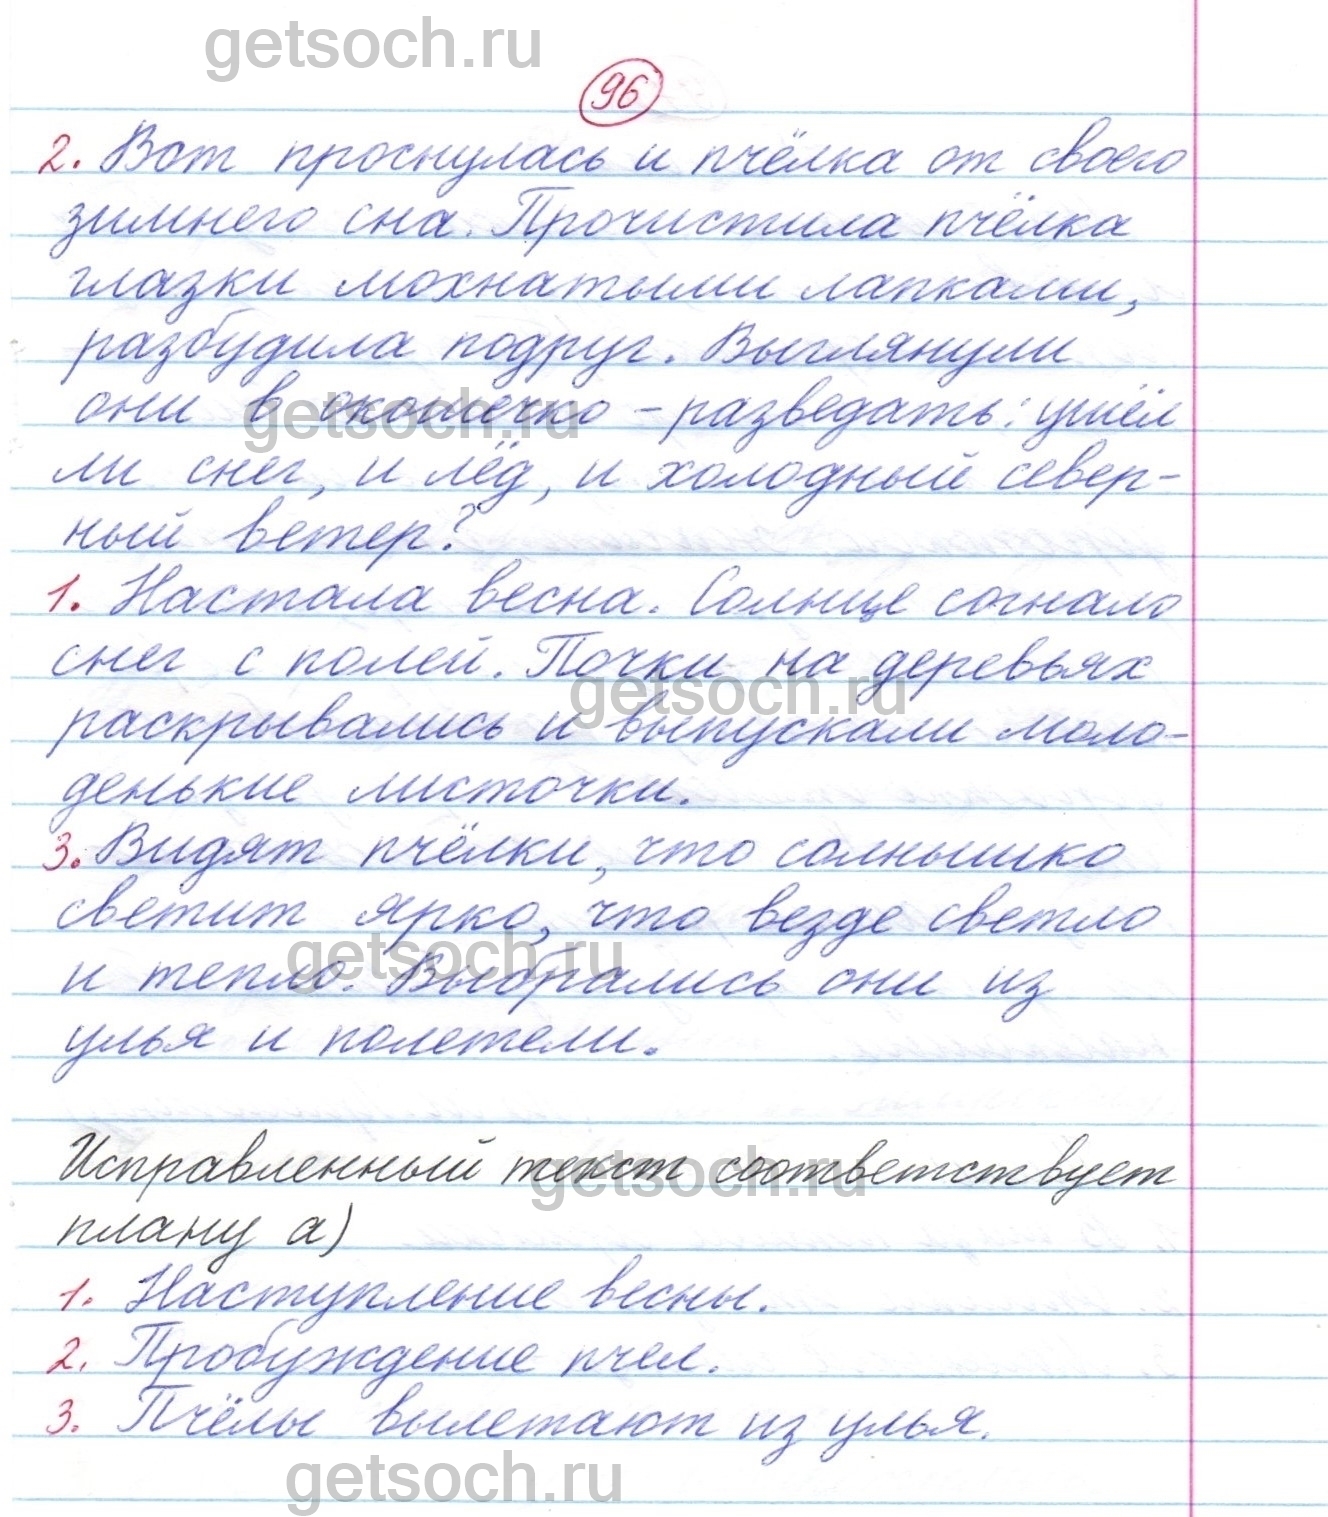 getsoch.ru
96
2. Вот проснулась и пчёлка от своего
зимнего сна. Прочистила пчёлка
глазки мохнатыми лапками,
разбудила подруг. Выглянули
они в окошечко - разведать: ушёл
getsoch.ru
ли снег, и лёд, и холодный север-
ный ветер?
1. Настала весна. Солнце согнало
снег с полей. Почки на деревьях
getsoch.ru
раскрывались и выпускали моло-
денькие листочки.
3. Видят пчёлки, что солнышко
светит ярко, что везде светло
getsoch.ru
и тепло. Выбрались они из
улья и полетели.
Исправленный текст соответствует
getsoch.ru
плану а)
1. Наступление весны.
2. Пробуждение пчел.
3. Пчёлы вылетают из улья.
getsoch.ru